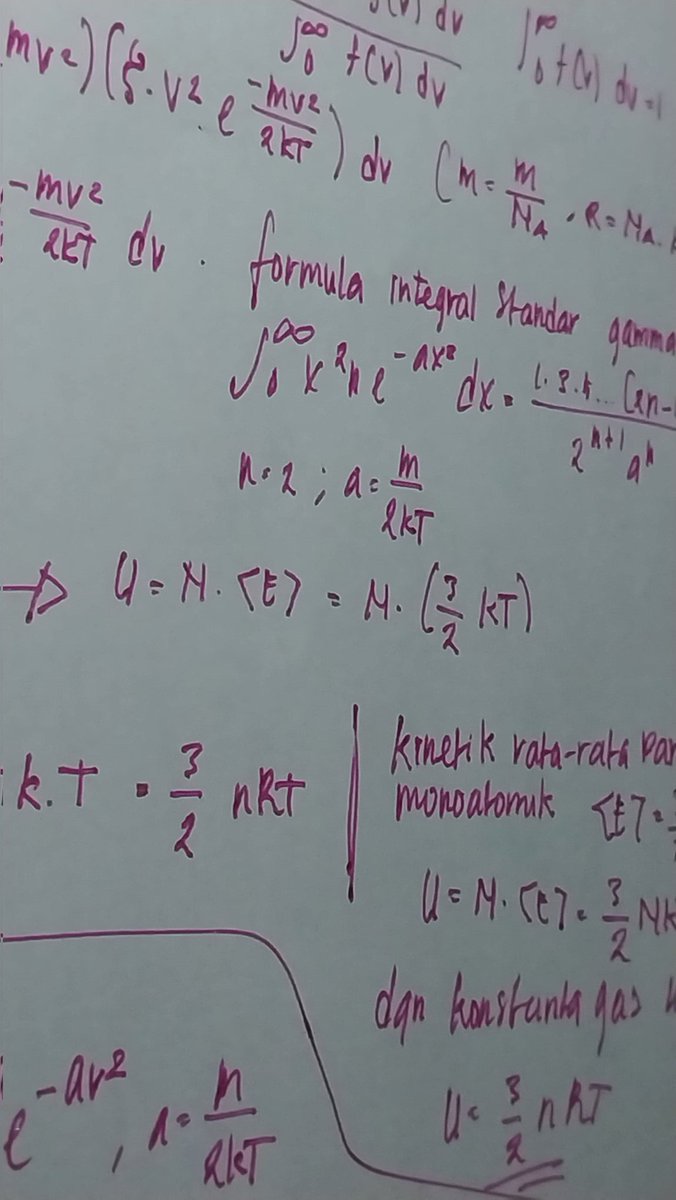 ∫₀^∞ f(v) dv   ∫₀^∞ f(v) dv = 1
mv²)(ξ · v² · e^(-mv²/2kT)) dv   (m = m/N_A · R = N_A ·
-mv²/2kT dv · formula integral standar gamma
∫₀^∞ x^2n e^(-ax²) dx = 1.3.5... (2n-
2^(n+1) a^n
n = 2 ; a = m/2kT
→ U = N · <E> = N · (3/2 kT)
k.T = 3/2 nRT
kinetik rata-rata par
monoatomik <E> =
U = N · <E> = 3/2 Nk
dan konstanta gas
U = 3/2 nRT
e^(-av²), a = m/2kT